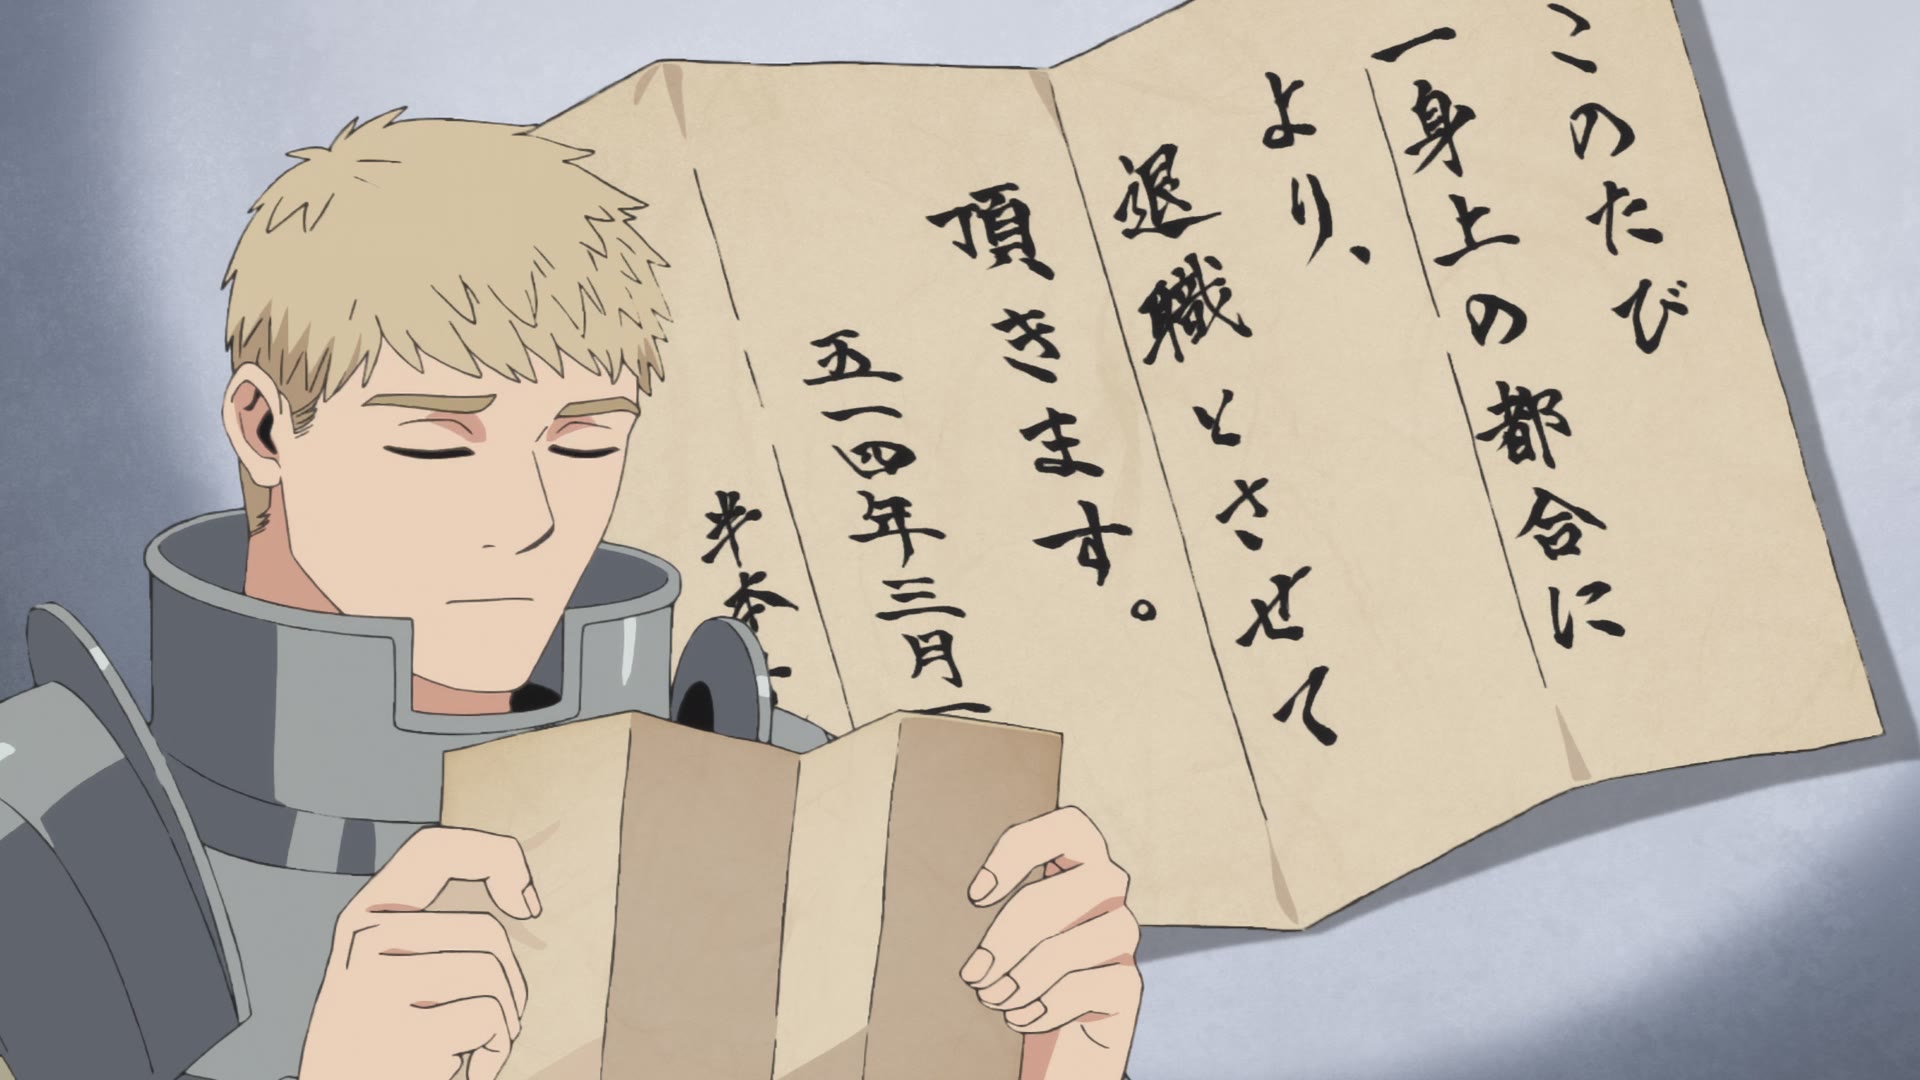 このたび
一身上の都合に
より、
退職とさせて
頂きます。
五一四年三月